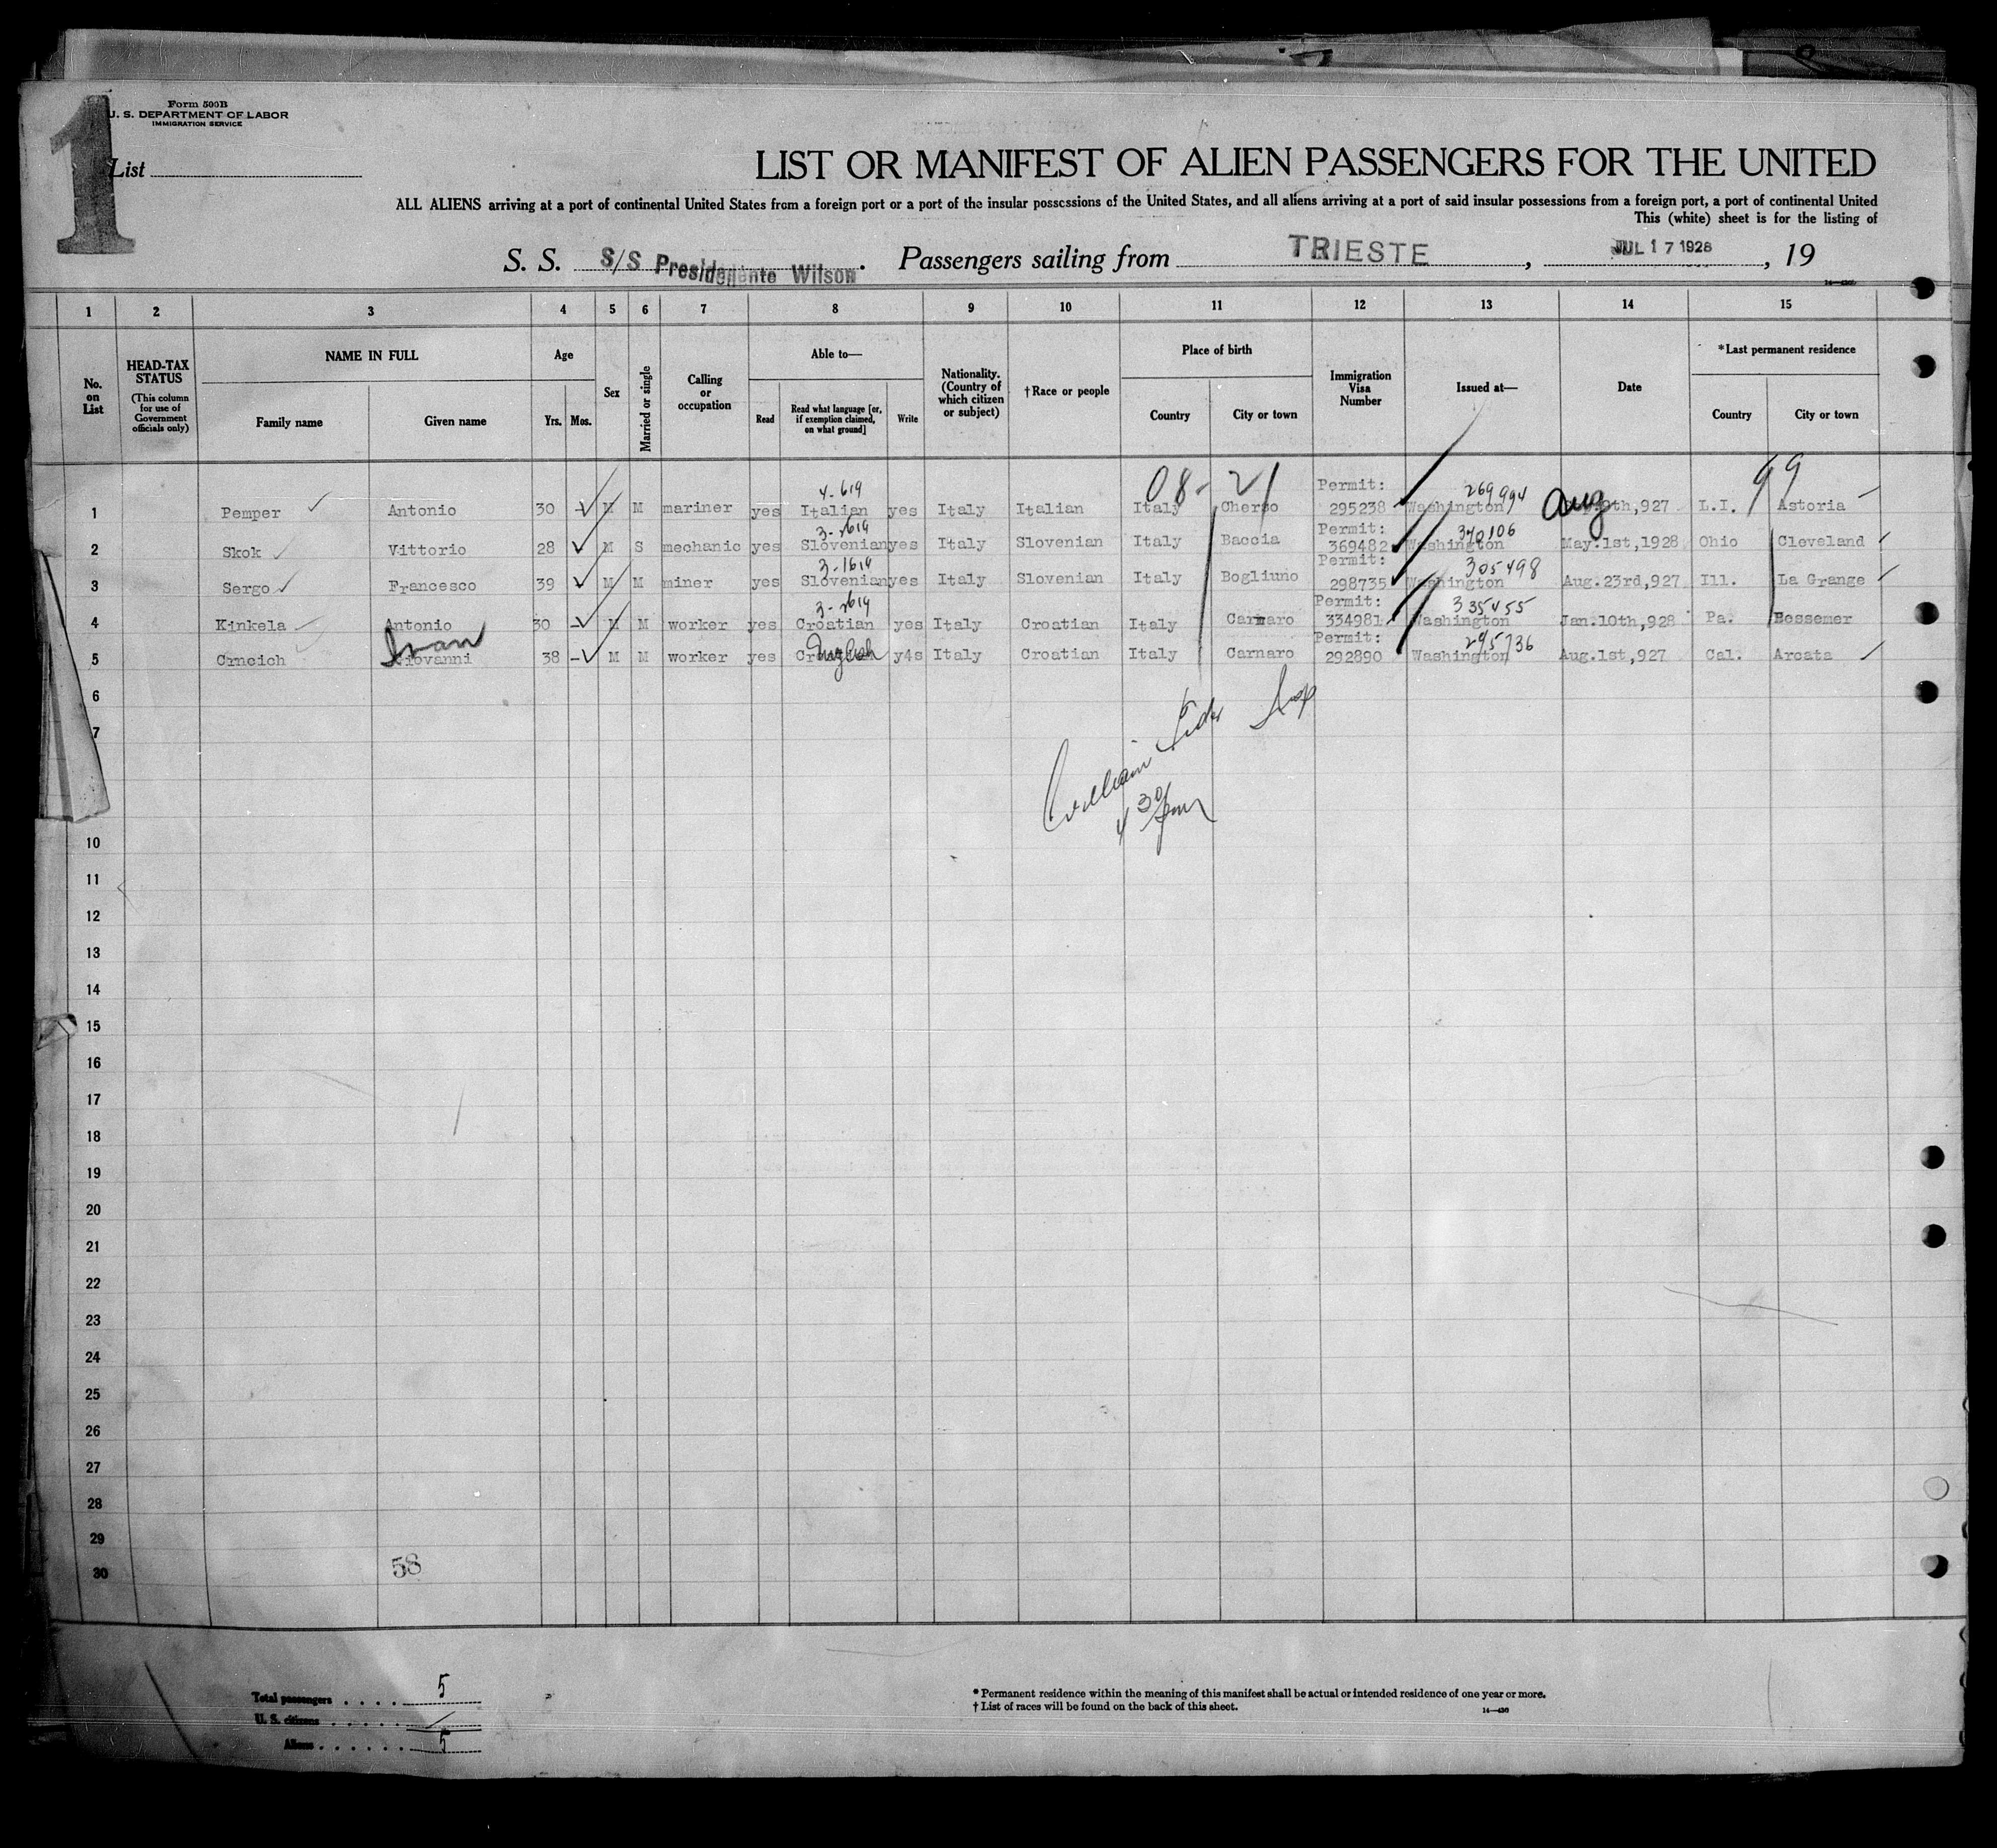 1
Form 500B
U. S. DEPARTMENT OF LABOR
IMMIGRATION SERVICE
List
LIST OR MANIFEST OF ALIEN PASSENGERS FOR THE UNITED
ALL ALIENS arriving at a port of continental United States from a foreign port or a port of the insular possessions of the United States, and all aliens arriving at a port of said insular possessions from a foreign port, a port of continental United
This (white) sheet is for the listing of
S. S. S/S Presidente Wilson. Passengers sailing from TRIESTE, JUL 17 1928, 19
1 2 3 4 5 6 7 8 9 10 11 12 13 14 15
No. on List
HEAD-TAX STATUS
(This column for use of Government officials only)
NAME IN FULL
Family name Given name
Age
Yrs. Mos.
Sex
Married or single
Calling or occupation
Able to—
Read Read what language [or, if exemption claimed, on what ground] Write
Nationality. (Country of which citizen or subject)
† Race or people
Place of birth
Country City or town
Immigration Visa Number
Issued at—
Date
*Last permanent residence
Country City or town
08-21 99
4-619 Permit: 269994
1 Pemper Antonio 30 - M M mariner yes Italian yes Italy Italian Italy Cherso 295238 Washington Aug th,927 L.I. Astoria
Permit: 370106
2 Skok Vittorio 28 M S mechanic yes Slovenian yes Italy Slovenian Italy Baccia 369482 Washington May.1st,1928 Ohio Cleveland
3-1619 Permit: 305498
3 Sergo Francesco 39 M M miner yes Slovenian yes Italy Slovenian Italy Bogliuno 298735 Washington Aug.23rd,927 Ill. La Grange
Permit: 335455
4 Kinkela Antonio 30 - M M worker yes Croatian yes Italy Croatian Italy Carnaro 334981 Washington Jan.10th,928 Pa. Bessemer
Ivan English Permit: 295736
5 Crncich Giovanni 38 - M M worker yes y4s Italy Croatian Italy Carnaro 292890 Washington Aug.1st,927 Cal. Arcata
6
7
William
4 30 pm
10
11
12
13
14
15
16
17
18
19
20
21
22
23
24
25
26
27
28
29
30
58
Total passengers . . . . 5
U. S. citizens . . . . .
Aliens . . . . . . 5
* Permanent residence within the meaning of this manifest shall be actual or intended residence of one year or more.
† List of races will be found on the back of this sheet.
14—430